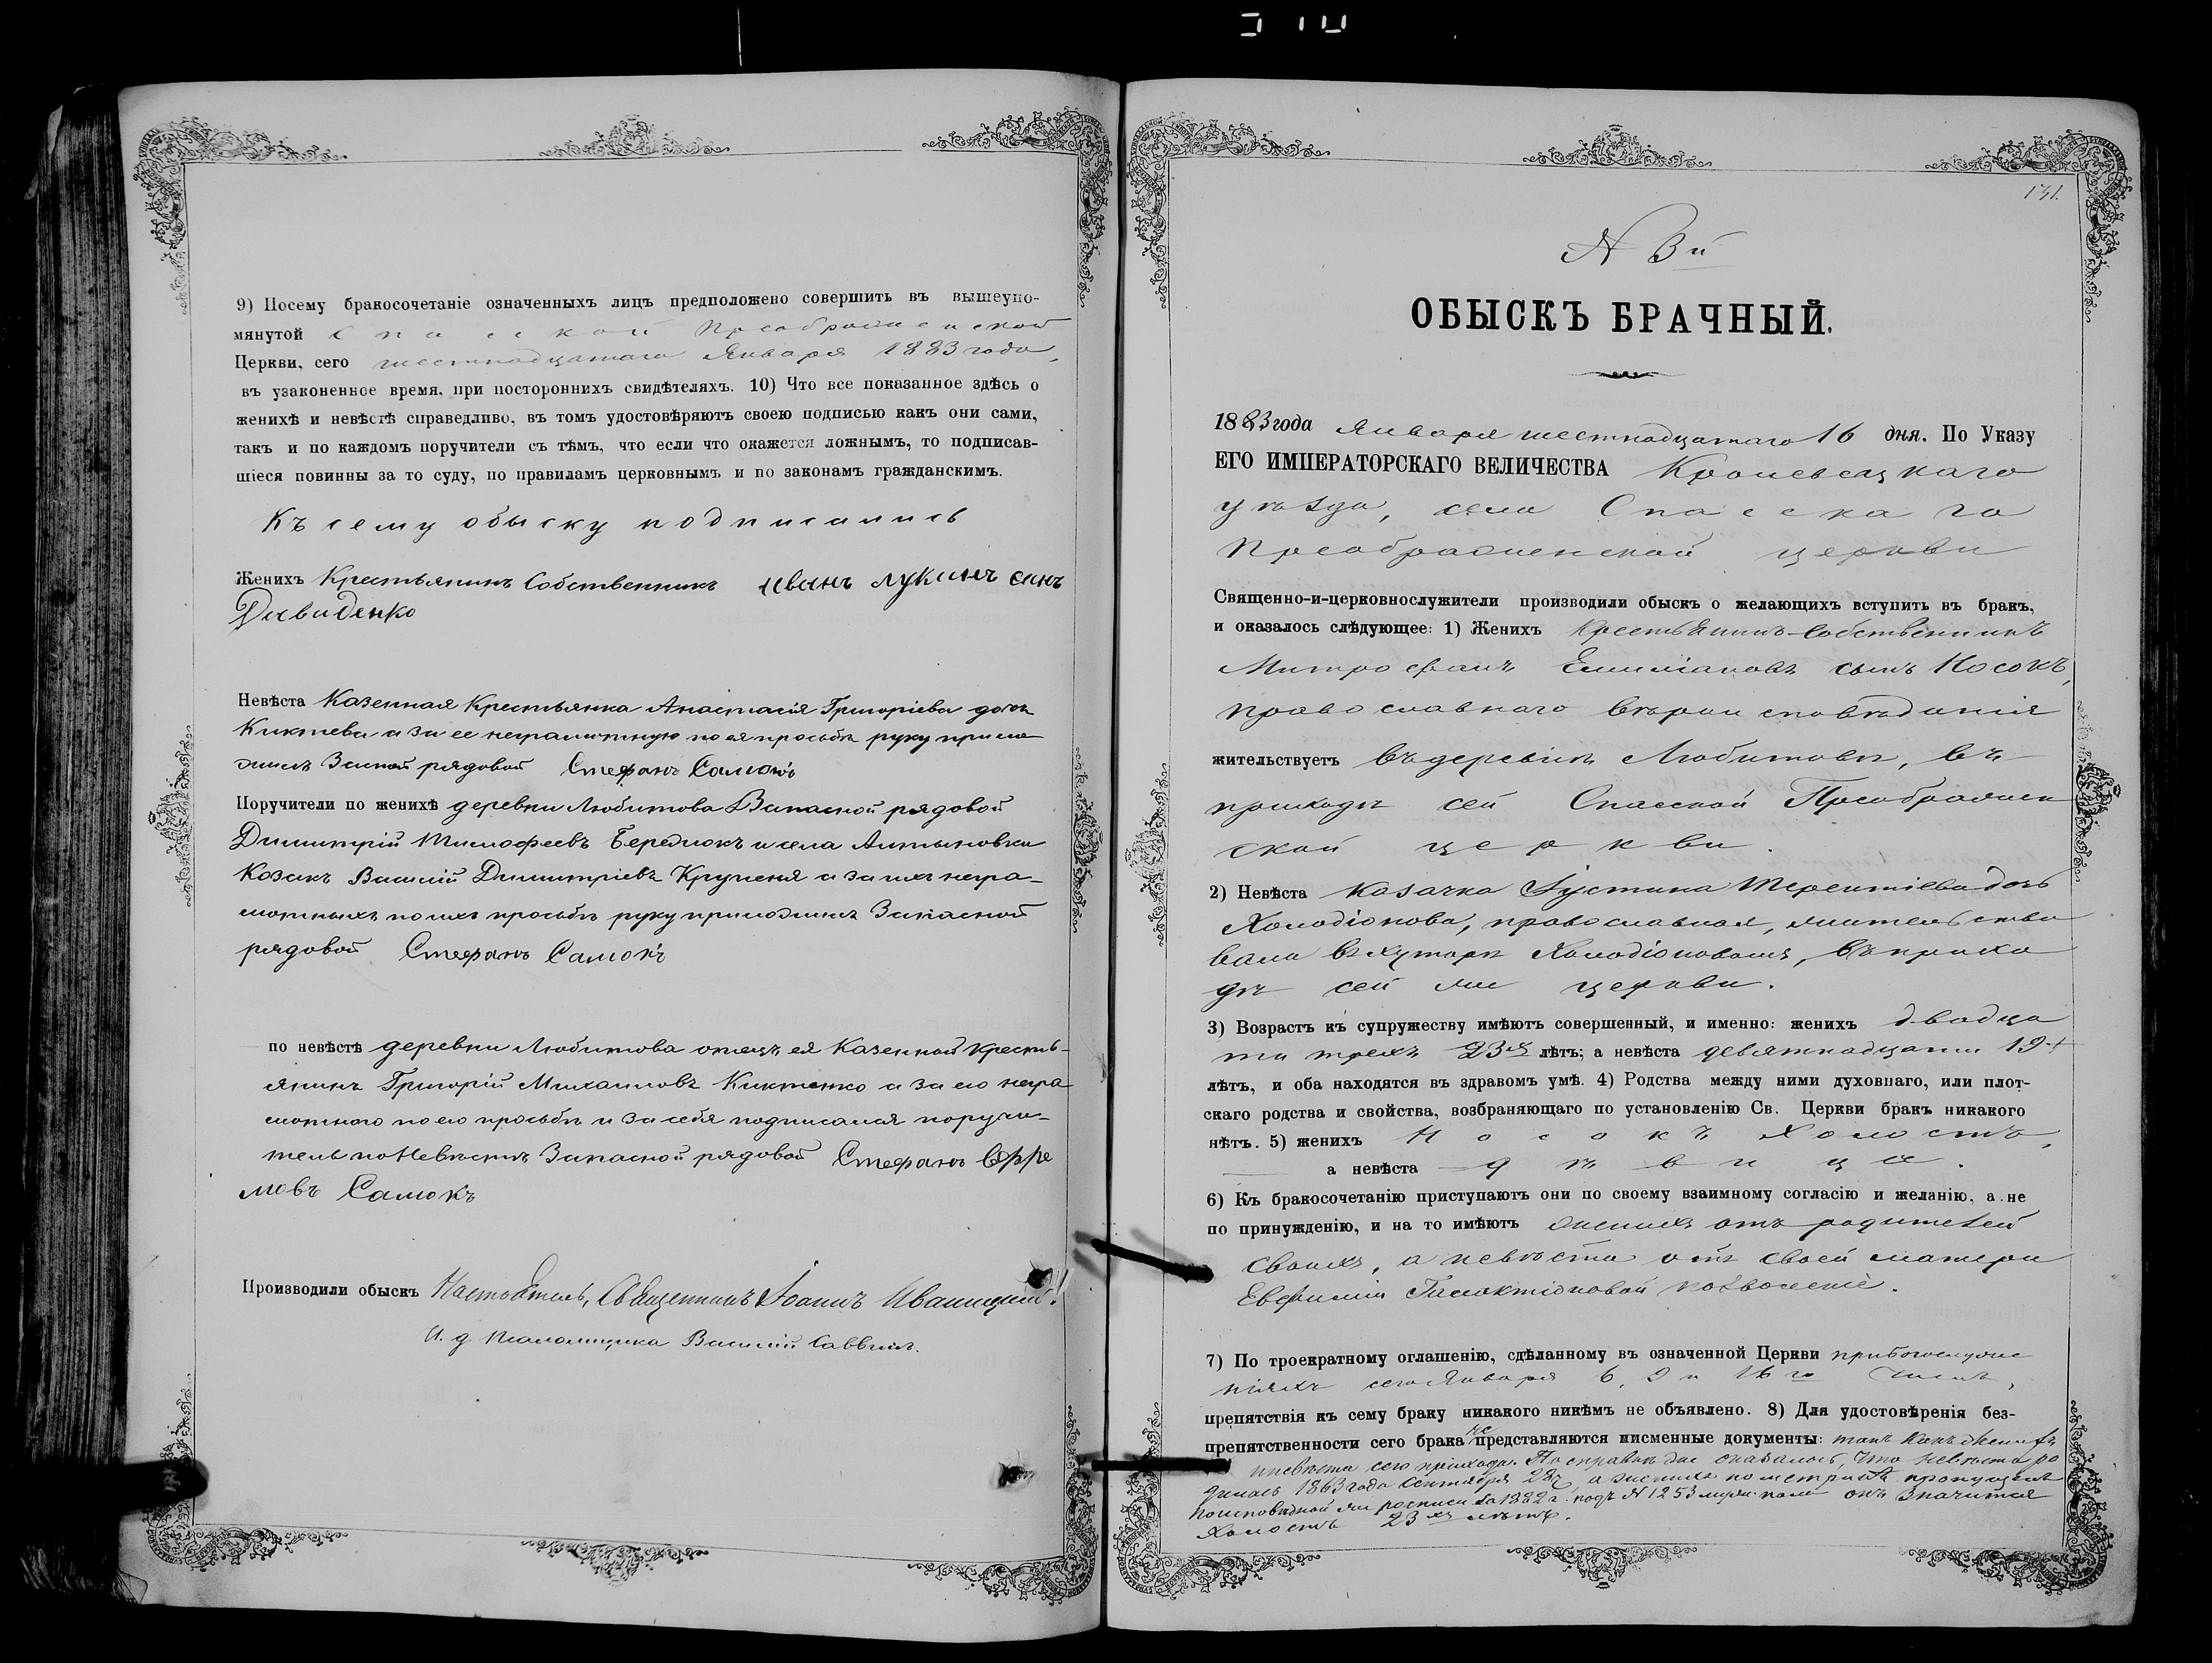 9) Посему бракосочетаніе означенныхъ лицъ предположено совершить въ вышеупо-
мянутой Спасской Преображенской
Церкви, сего шестнадцатаго Января 1883 года,
въ узаконенное время, при постороннихъ свидѣтеляхъ. 10) Что все показанное здѣсь о
женихѣ и невѣстѣ справедливо, въ томъ удостовѣряютъ своею подписью какъ они сами,
такъ и по каждомъ поручители съ тѣмъ, что если что окажется ложнымъ, то подписав-
шіеся повинны за то суду, по правиламъ церковнымъ и по законамъ гражданскимъ.
Къ сему обыску подписались
Женихъ Крестьянинъ Собственникъ иванъ лукинъ синъ
Давиденко
Невѣста Казенная Крестьянка Анастасія Григоріева дочь
Киктева а за ее неграмотную по ея просьбѣ руку прило
жилъ Запасной рядовой Стефанъ Самокъ
Поручители по женихѣ деревни Любитова Запасной рядовой
Димитрій Тимофеевъ Середюкъ и села Алтыновки
Козакъ Василій Димитріевъ Крупеня а за ихъ негра-
мотныхъ по ихъ просьбѣ руку приложилъ Запасной
рядовой Стефанъ Самокъ
по невѣстѣ деревни Любитова отецъ ея Казенный Кресть-
янинъ Григорій Михаиловъ Киктенко а за его негра
мотного по его просьбѣ и за себя подписался поручи-
тель по Невѣстѣ Запасной рядовой Стефанъ Ефре
мовъ Самокъ
Производили обыскъ Настоятель, Священникъ Іоаннъ Иваницкій
И. д. Псаломщика Василій Саввичъ.
131.
N 3й
ОБЫСКЪ БРАЧНЫЙ.
1883 года Января шестнадцатаго 16 дня. По Указу
ЕГО ИМПЕРАТОРСКАГО ВЕЛИЧЕСТВА Кролевецкаго
уѣзда, села Спасскаго
Преображенской церкви
Священно-и-церковнослужители производили обыскъ о желающихъ вступить въ бракъ,
и оказалось слѣдующее: 1) Женихъ Крестьянинъ-Собственникъ
Митрофанъ Емиліановъ сынъ Носокъ,
православнаго вѣроисповѣданія
жительствуетъ въ деревнѣ Любитовѣ, въ
приходѣ сей Спасской Преображен
ской церкви.
2) Невѣста Козачка Іустина Терентіева дочь
Холодіонова, православная, жительство
вала въ хуторѣ Холодіоновомъ, въ прихо
дѣ сей же церкви.
3) Возрастъ къ супружеству имѣютъ совершенный, и именно: женихъ двадца
ти трехъ 23хъ лѣтъ; а невѣста девятнадцати 19
лѣтъ, и оба находятся въ здравомъ умѣ. 4) Родства между ними духовнаго, или плот-
скаго родства и свойства, возбраняющаго по установленію Св. Церкви бракъ никакого
нѣтъ. 5) женихъ Носокъ Холостъ,
а невѣста дѣвица.
6) Къ бракосочетанію приступаютъ они по своему взаимному согласію и желанію, а не
по принужденію, и на то имѣютъ женихъ отъ родителей
своихъ, а невѣста отъ своей матери
Евфиміи позволеніе.
7) По троекратному оглашенію, сдѣланному въ означенной Церкви при богослуже
ніяхъ сего Января 6, 9 и 16го числъ,
препятствія къ сему браку никакого никѣмъ не объявлено. 8) Для удостовѣренія без-
препятственности сего брака не представляются писменные документы: такъ какъ женихъ
и невѣста сего прихода. По справкѣ же оказалось, что невѣста ро
дилась 1863 года Сентября 28, а женихъ по метрикѣ пропущенъ
по исповѣдной же росписи за 1882 г. подъ N 1253 муж. пола онъ значится
Холостъ 23хъ лѣтъ.